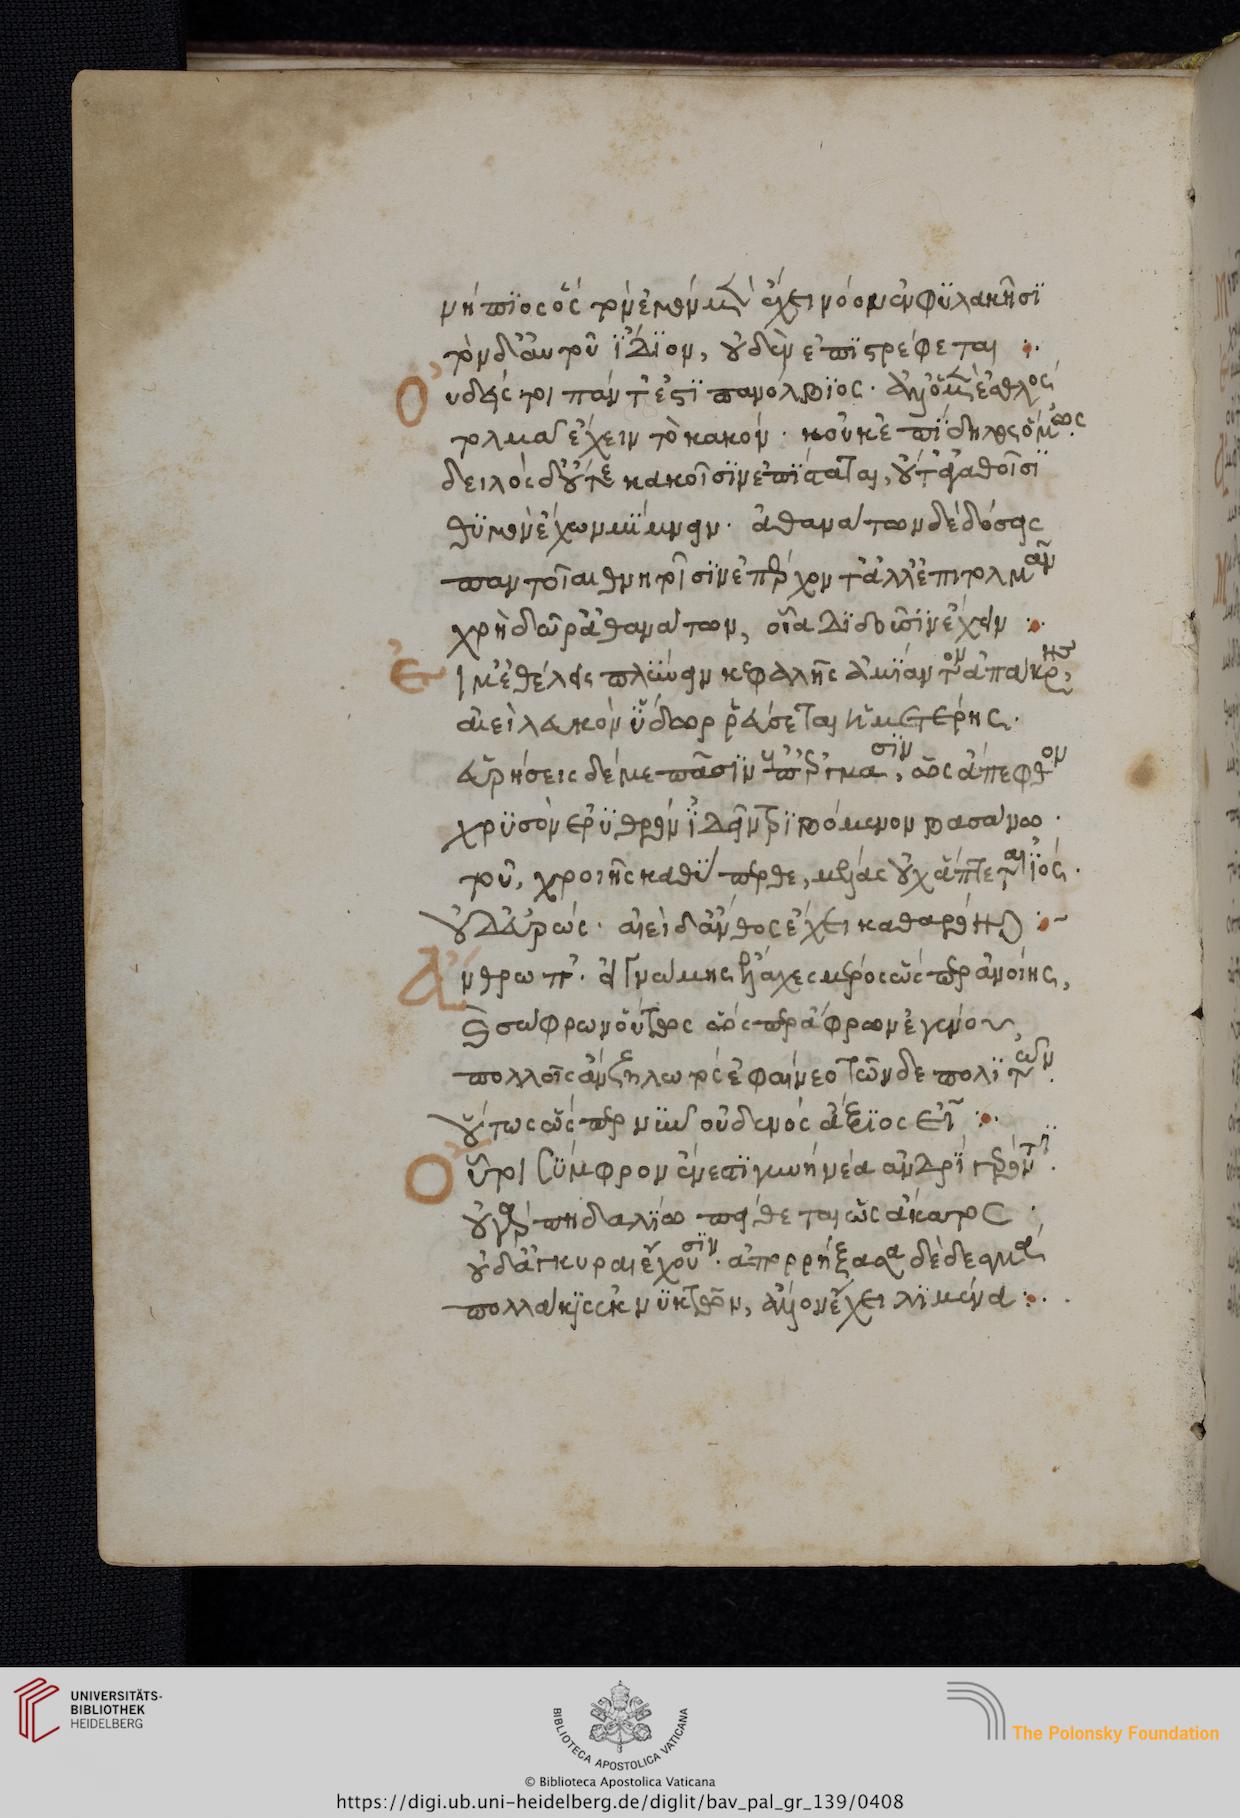 νήπϊος ὅς τὸν ἐμὸν μὲν ἔχει νόον ἐν φϋλακῆισϊ
τὸν δ' ἀυτοῦ ἴδϊον, οὐδὲν ἐπϊστρέφεται ⁘
Οὐδεὶς τοι πάντ' ἐστϊ πανόλβϊος· ἀλλ' ὁ μὲν ἐσθλὸς
τολμᾶ ἔχειν τὸ κακόν· κοὐκ ἐπΐδηλος ὅμως.
δειλὸς δ' οὔτε κακοῖσϊν ἐπΐσταται, οὔτ' ἀγαθοῖσϊ
θϋμὸν ἔχων μΐμνειν· ἀθανάτων δὲ δόσεις
παντοῖαι θνητοῖσϊν ἐπέρχοντ' ἀλλ' ἐπιτολμᾶν
χρὴ δῶρ' ἀθανάτων, οἷα δϊδοῦσϊν ἔχειν ⁘
Εἴ μ' ἐθέλεις πλΰνειν κεφαλῆς ἀμΐαντον ἀπ' ἄκρης,
αἰεὶ λευκὸν ὕδωρ ῥεύσεται ἡμετέρης.
εὑρήσεις δέ με πᾶσϊν ἐπ' ἔργμασϊν, ὡς ἄπεφθον
χρϋσὸν ἐρϋθρὸν ἰδεῖν τρϊβόμενον βασάνω·
τοῦ, χροιῆς καθΰπερθε, μέλας οὐχ ἅπτεται ἰός·
οὐδ' εὐρώς· αἰεὶ δ' ἄνθος ἔχει καθαρόν ⁘
Ἄνθρωπ'· εἰ γνώμης ἔλαχες μέρος ὥσπερ ἀνοίης,
καὶ σώφρων οὕτως ὥσπερ ἄφρων ἐγένου,
πολλοῖς ἂν ζηλωτὸς ἐφαίνεο τῶνδε πολϊτῶν.
οὕτως ὥσπερ νῦν οὐδενὸς ἄξϊος εἶ ⁘
Οὔτοι σΰμφρον ἐνεστϊ γυνὴ νέα ἀνδρϊ γέροντϊ.
οὐ γὰρ πηδαλΐω πείθεται ὡς ἄκατος·
οὐδ' ἄγκυραι ἔχουσϊν· ἀπορρήξασα δὲ δεσμὰ
πολλάκϊς ἐκ νϋκτῶν, ἄλλον ἔχει λϊμένα ⁘
UNIVERSITÄTS-
BIBLIOTHEK
HEIDELBERG
BIBLIOTECA APOSTOLICA VATICANA
The Polonsky Foundation
© Biblioteca Apostolica Vaticana
https://digi.ub.uni-heidelberg.de/diglit/bav_pal_gr_139/0408